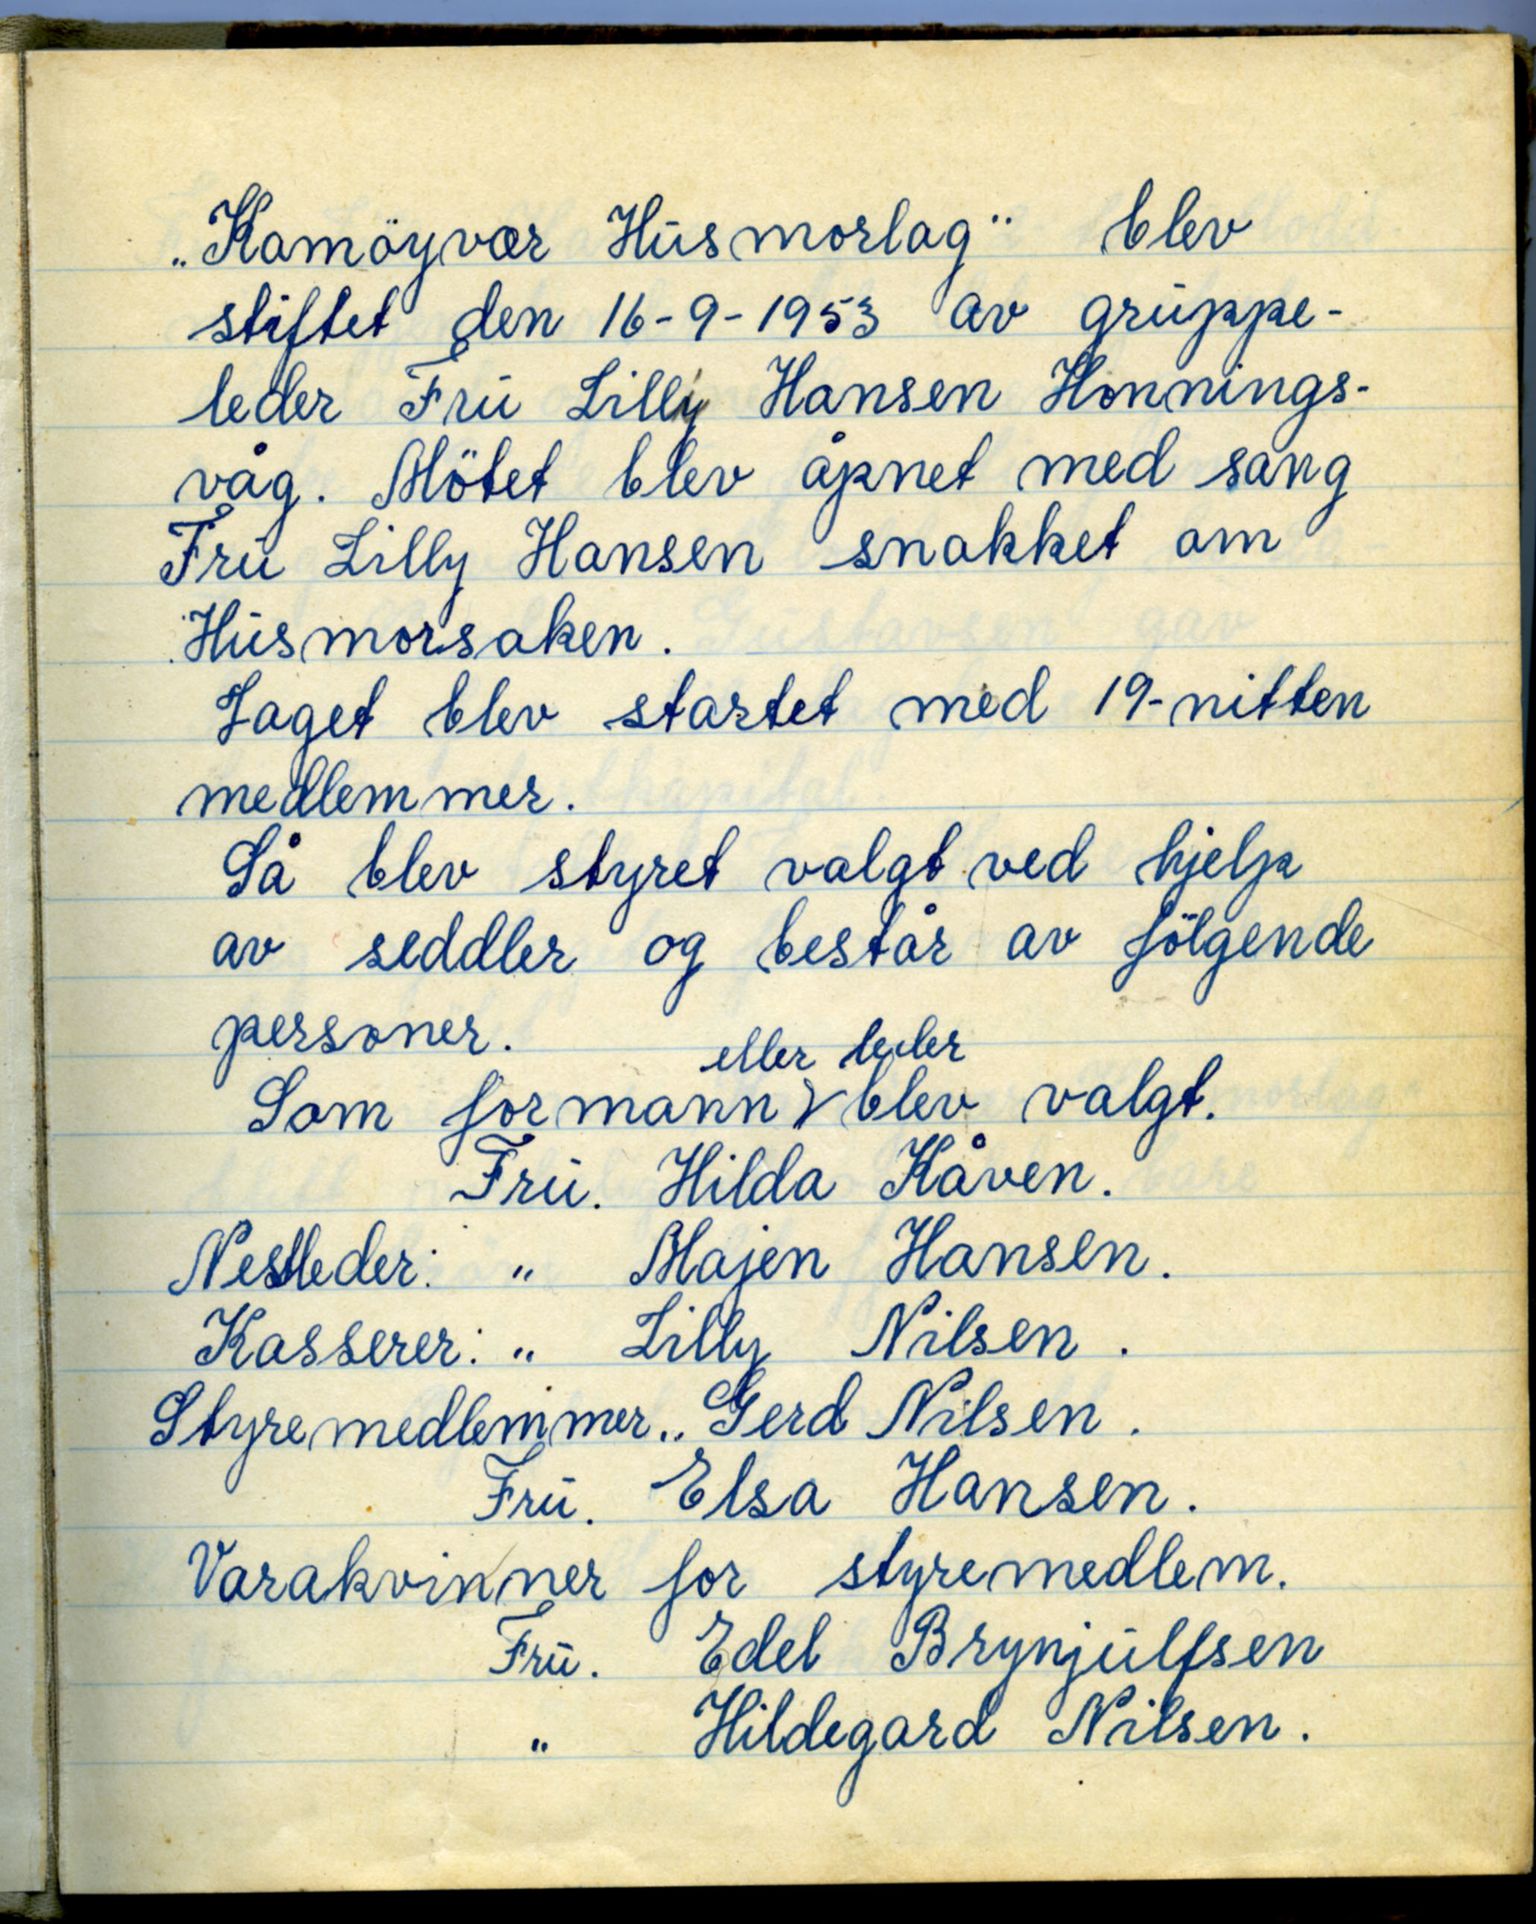 „Kamöyvær Husmorlag" blev
stiftet den 16-9-1953 av gruppe-
leder Fru Lilly Hansen Honnings-
våg. Mötet blev åpnet med sang
Fru Lilly Hansen snakket om
Husmorsaken.
Laget blev startet med 19-nitten
medlemmer.
Så blev styret valgt ved hjelp
av seddler og består av fölgende
personer.
eller leder
Som formann blev valgt.
Fru. Hilda Kåven.
Nestleder: " Majen Hansen.
Kasserer: " Lilly Nilsen.
Styremedlemmer. " Gerd Nilsen.
Fru. Elsa Hansen.
Varakvinner for styremedlem.
Fru. Edel Brynjulfsen
" Hildegard Nilsen.